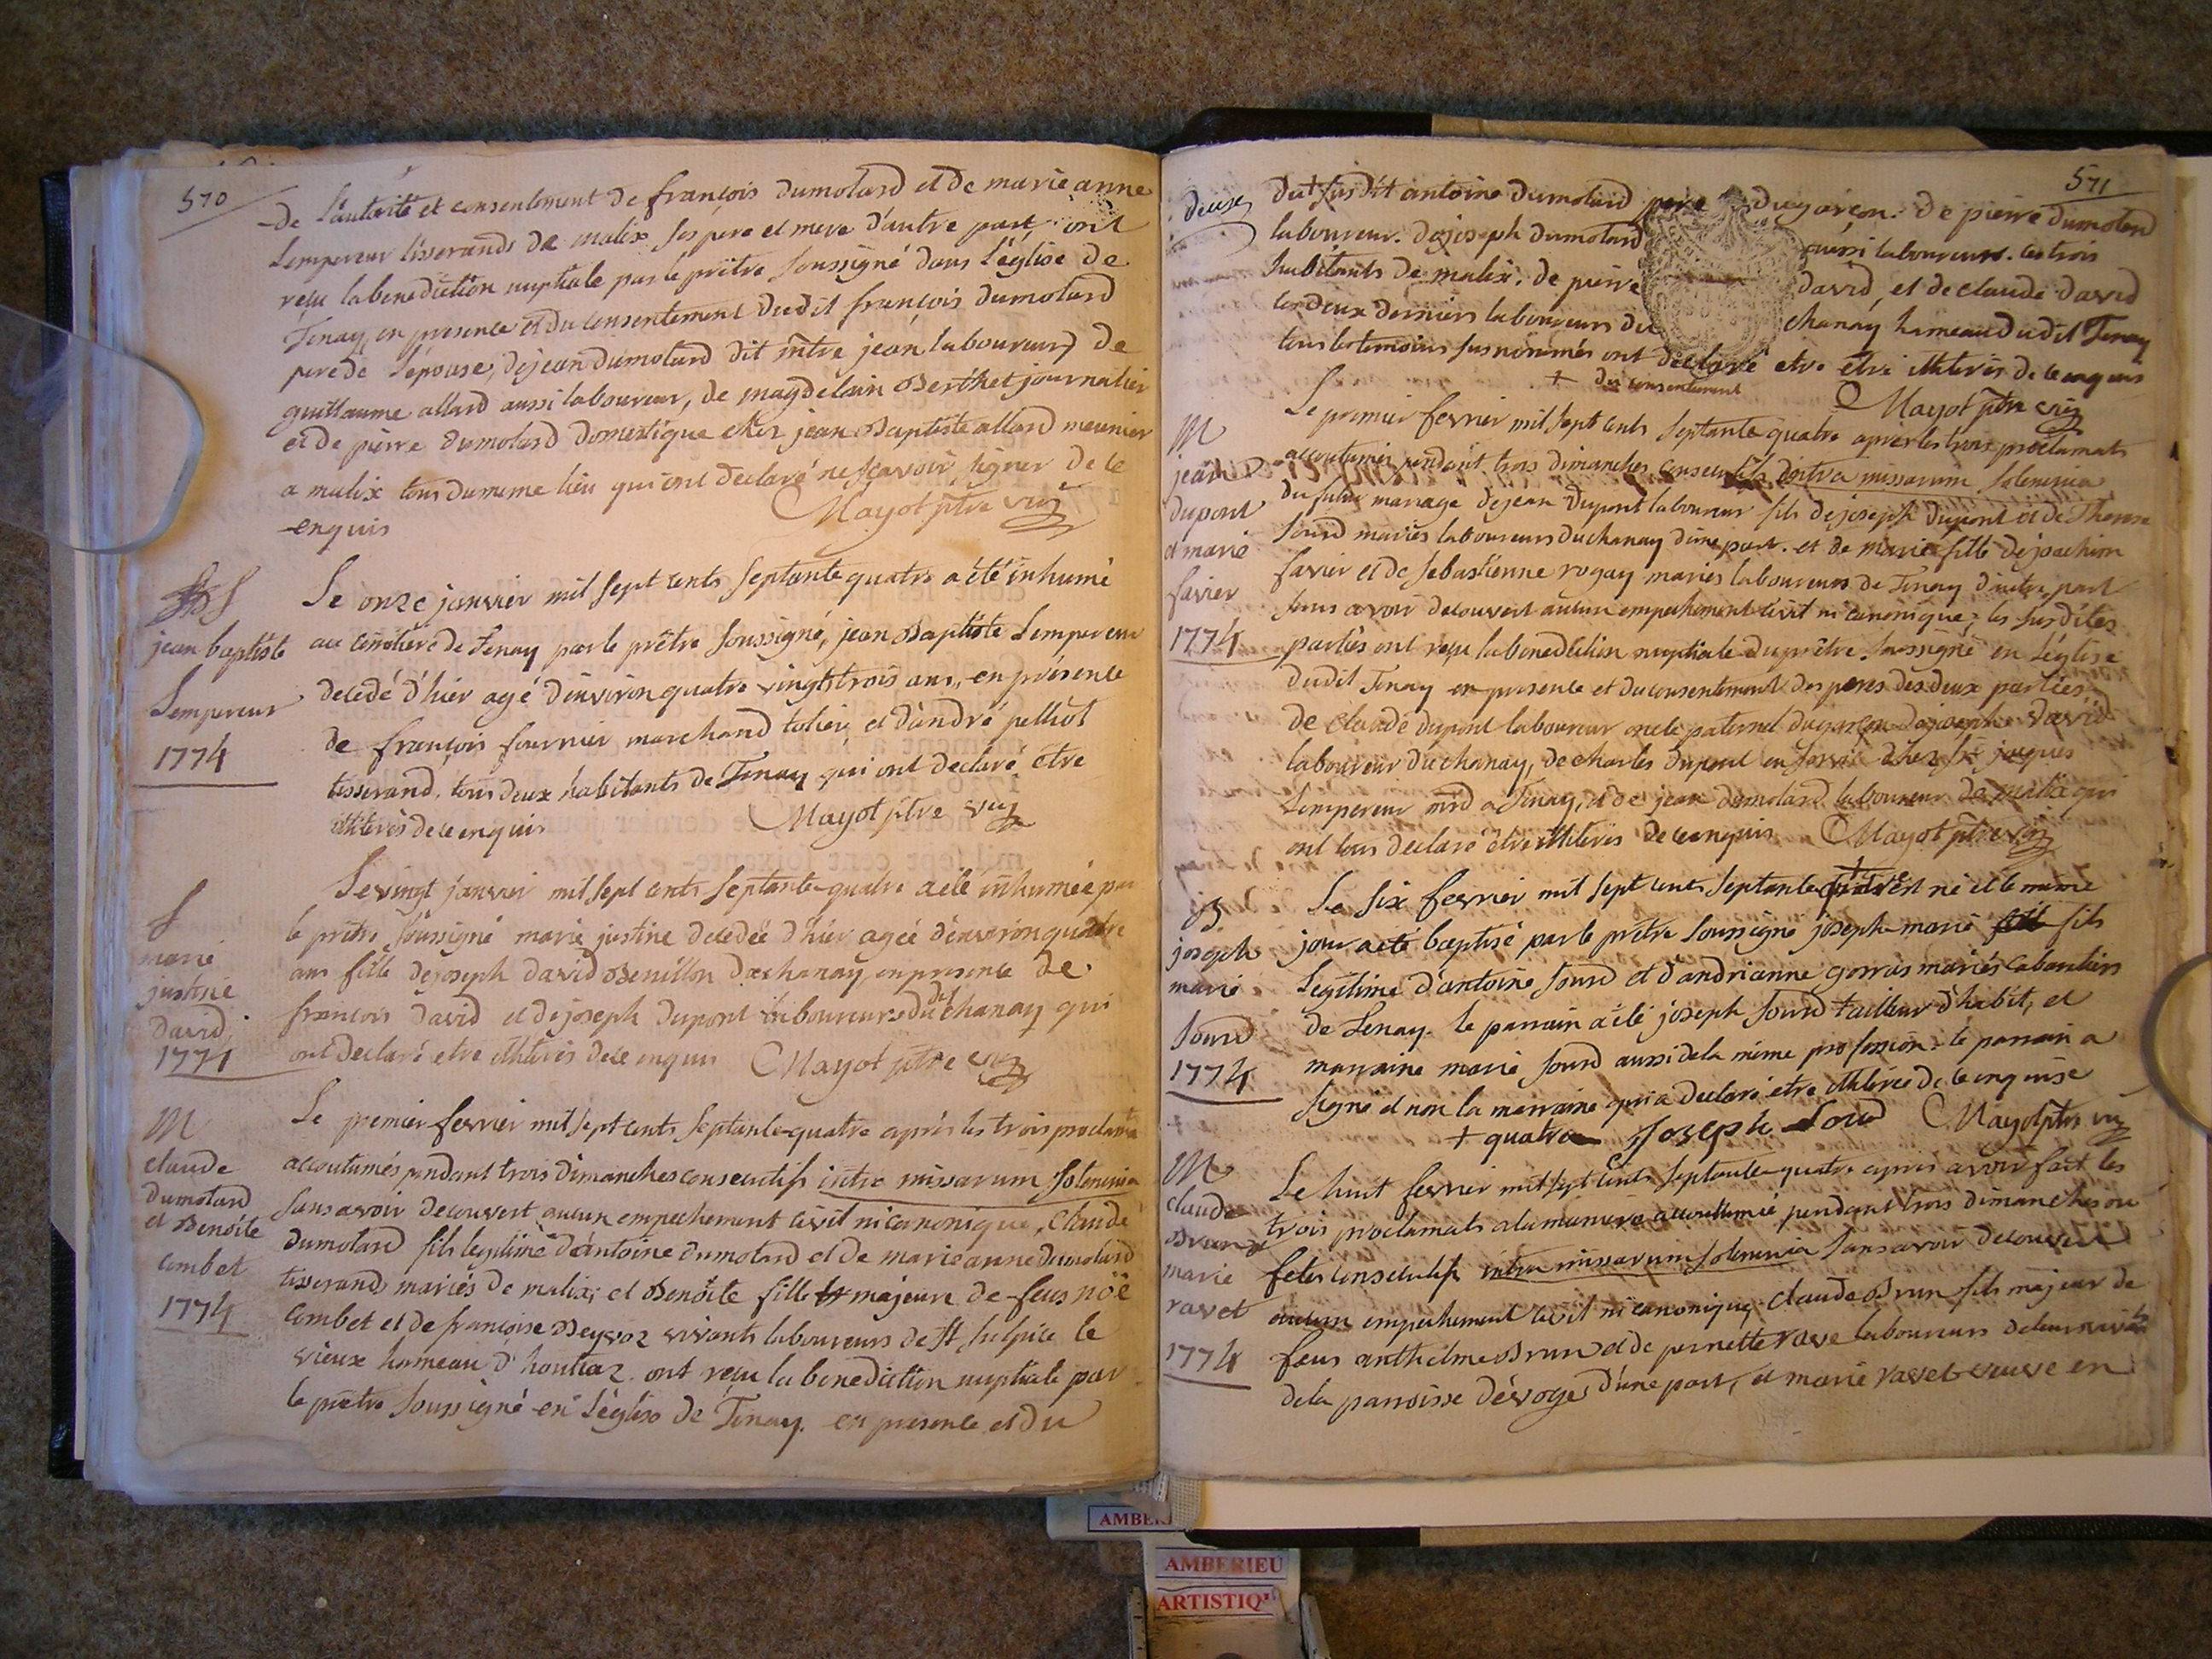 570
de l'autorité et consentement de françois dumolard et de marie anne
Lempereur tisserands de malix ses pere et mere d'autre part ont
reçu la benediction nuptiale par le prêtre soussigné dans l'église de
Tenay, en presence et du consentement dudit françois dumolard
pere de l'épouse, de jean dumolard dit mtre jean laboureur, de
guillaume allard aussi laboureur, de magdelain Berthet journalier
et de pierre dumolard domestique chez jean Baptiste allard meunier
a malix tous du meme lieu qui ont declaré ne scavoir signer de ce
enquis
Mayot ptre vic
S
jean baptiste
Lempereur
1774
Le onze janvier mil sept cents septante quatre a été inhumé
au cimetiere de Tenay par le prêtre soussigné, jean Baptiste Lempereur
decedé d'hier agé d'environ quatre vingts trois ans, en présence
de françois fournier marchand tolier, et d'andré pelliot
tisserand, tous deux habitants de Tenay qui ont declaré etre
illiterés de ce enquis
Mayot ptre vic
S
marie
justine
david
1774
Le vingt janvier mil sept cents septante-quatre a été inhumée par
le prêtre soussigné marie justine decedée d'hier agée d'environ quatre
ans fille de joseph david Benillon du chanay, en presence de
françois david et de joseph dupont laboureurs du chanay qui
ont declaré etre illiterés de ce enquis Mayot ptre vic
M
claude
dumolard
et Benoite
combet
1774
Le premier fevrier mil sept cents septante-quatre après les trois proclamats
accoutumés pendant trois dimanches consecutifs intra missarum solemnia
sans avoir decouvert aucun empechement civil ni canonique, claude
dumolard fils legitime d'antoine dumolard et de marie anne dumolard
tisserands mariés de malix; et Benoite fille majeure de feus noë
combet et de françoise Beyvoz vivants laboureurs de st sulpice le
vieux hameau d'hontiaz. ont reçu la benediction nuptiale par
le prêtre soussigné en l'église de Tenay. en presence et du
571
deux
dut susdit antoine dumolard pere du garçon. de pierre dumolard
laboureur. de joseph dumolard aussi laboureurs. les trois
habitants de malix. de pierre david, et de claude david
ces deux derniers laboureurs du chanay hameau dudit Tenay
tous les temoins susnommés ont declaré etre etre illiterés de ce enquis
+ du consentement
Mayot ptre vic
M
jean
dupont
et marie
favier
1774
Le premier fevrier mil sept cents septante quatre après les trois proclamats
accoutumés pendant trois dimanches consecutifs intra missarum solemnia
du futur mariage de jean dupont laboureur fils de joseph dupont et de Therese
Sourd mariés laboureurs du chanay d'une part. et de marie fille de joachim
favier et de sebastienne rogay mariés laboureurs de Tenay d'autre part
sans avoir decouvert aucun empechement civil ni canonique; les susdites
parties ont reçu la benediction nuptiale du prêtre soussigné en l'église
dudit Tenay en presence et du consentement des peres des deux parties
de claude dupont laboureur oncle paternel du garçon de joseph david
laboureur du chanay, de charles dupont en service chez sr jacques
Lempereur md a Tenay, et de jean dumolard laboureur de malix qui
ont tous declaré être illiterés de ce enquis Mayot ptre vic
B
joseph
marie
Sourd
1774
Le six fevrier mil sept cents septante + est né et le meme
jour a été baptisé par le prêtre soussigné joseph marie fils
legitime d'antoine Sourd et d'andrianne gorras mariés cabaretiers
de Tenay. le parrain a été joseph Sourd tailleur d'habit, et
marraine marie Sourd aussi de la meme profession. le parrain a
signé et non la marraine qui a declaré etre illiterée de ce enquise
+ quatre Joseph Sourd Mayot ptre vic
M
claude
Brun et
marie
ravet
1774
Le huit fevrier mil sept cents septante-quatre après avoir fait les
trois proclamats a la maniere accoutumée pendant trois dimanches ou
fetes consecutifs intra missarum solemnia sans avoir decouvert
aucun empechement civil ni canonique, claude Brun fils majeur de
feus anthelme Brun et de pernette rave laboureurs de leur vivant
de la parroisse d'evoges d'une part, et marie ravet veuve en
AMBERIEU
ARTISTIQ